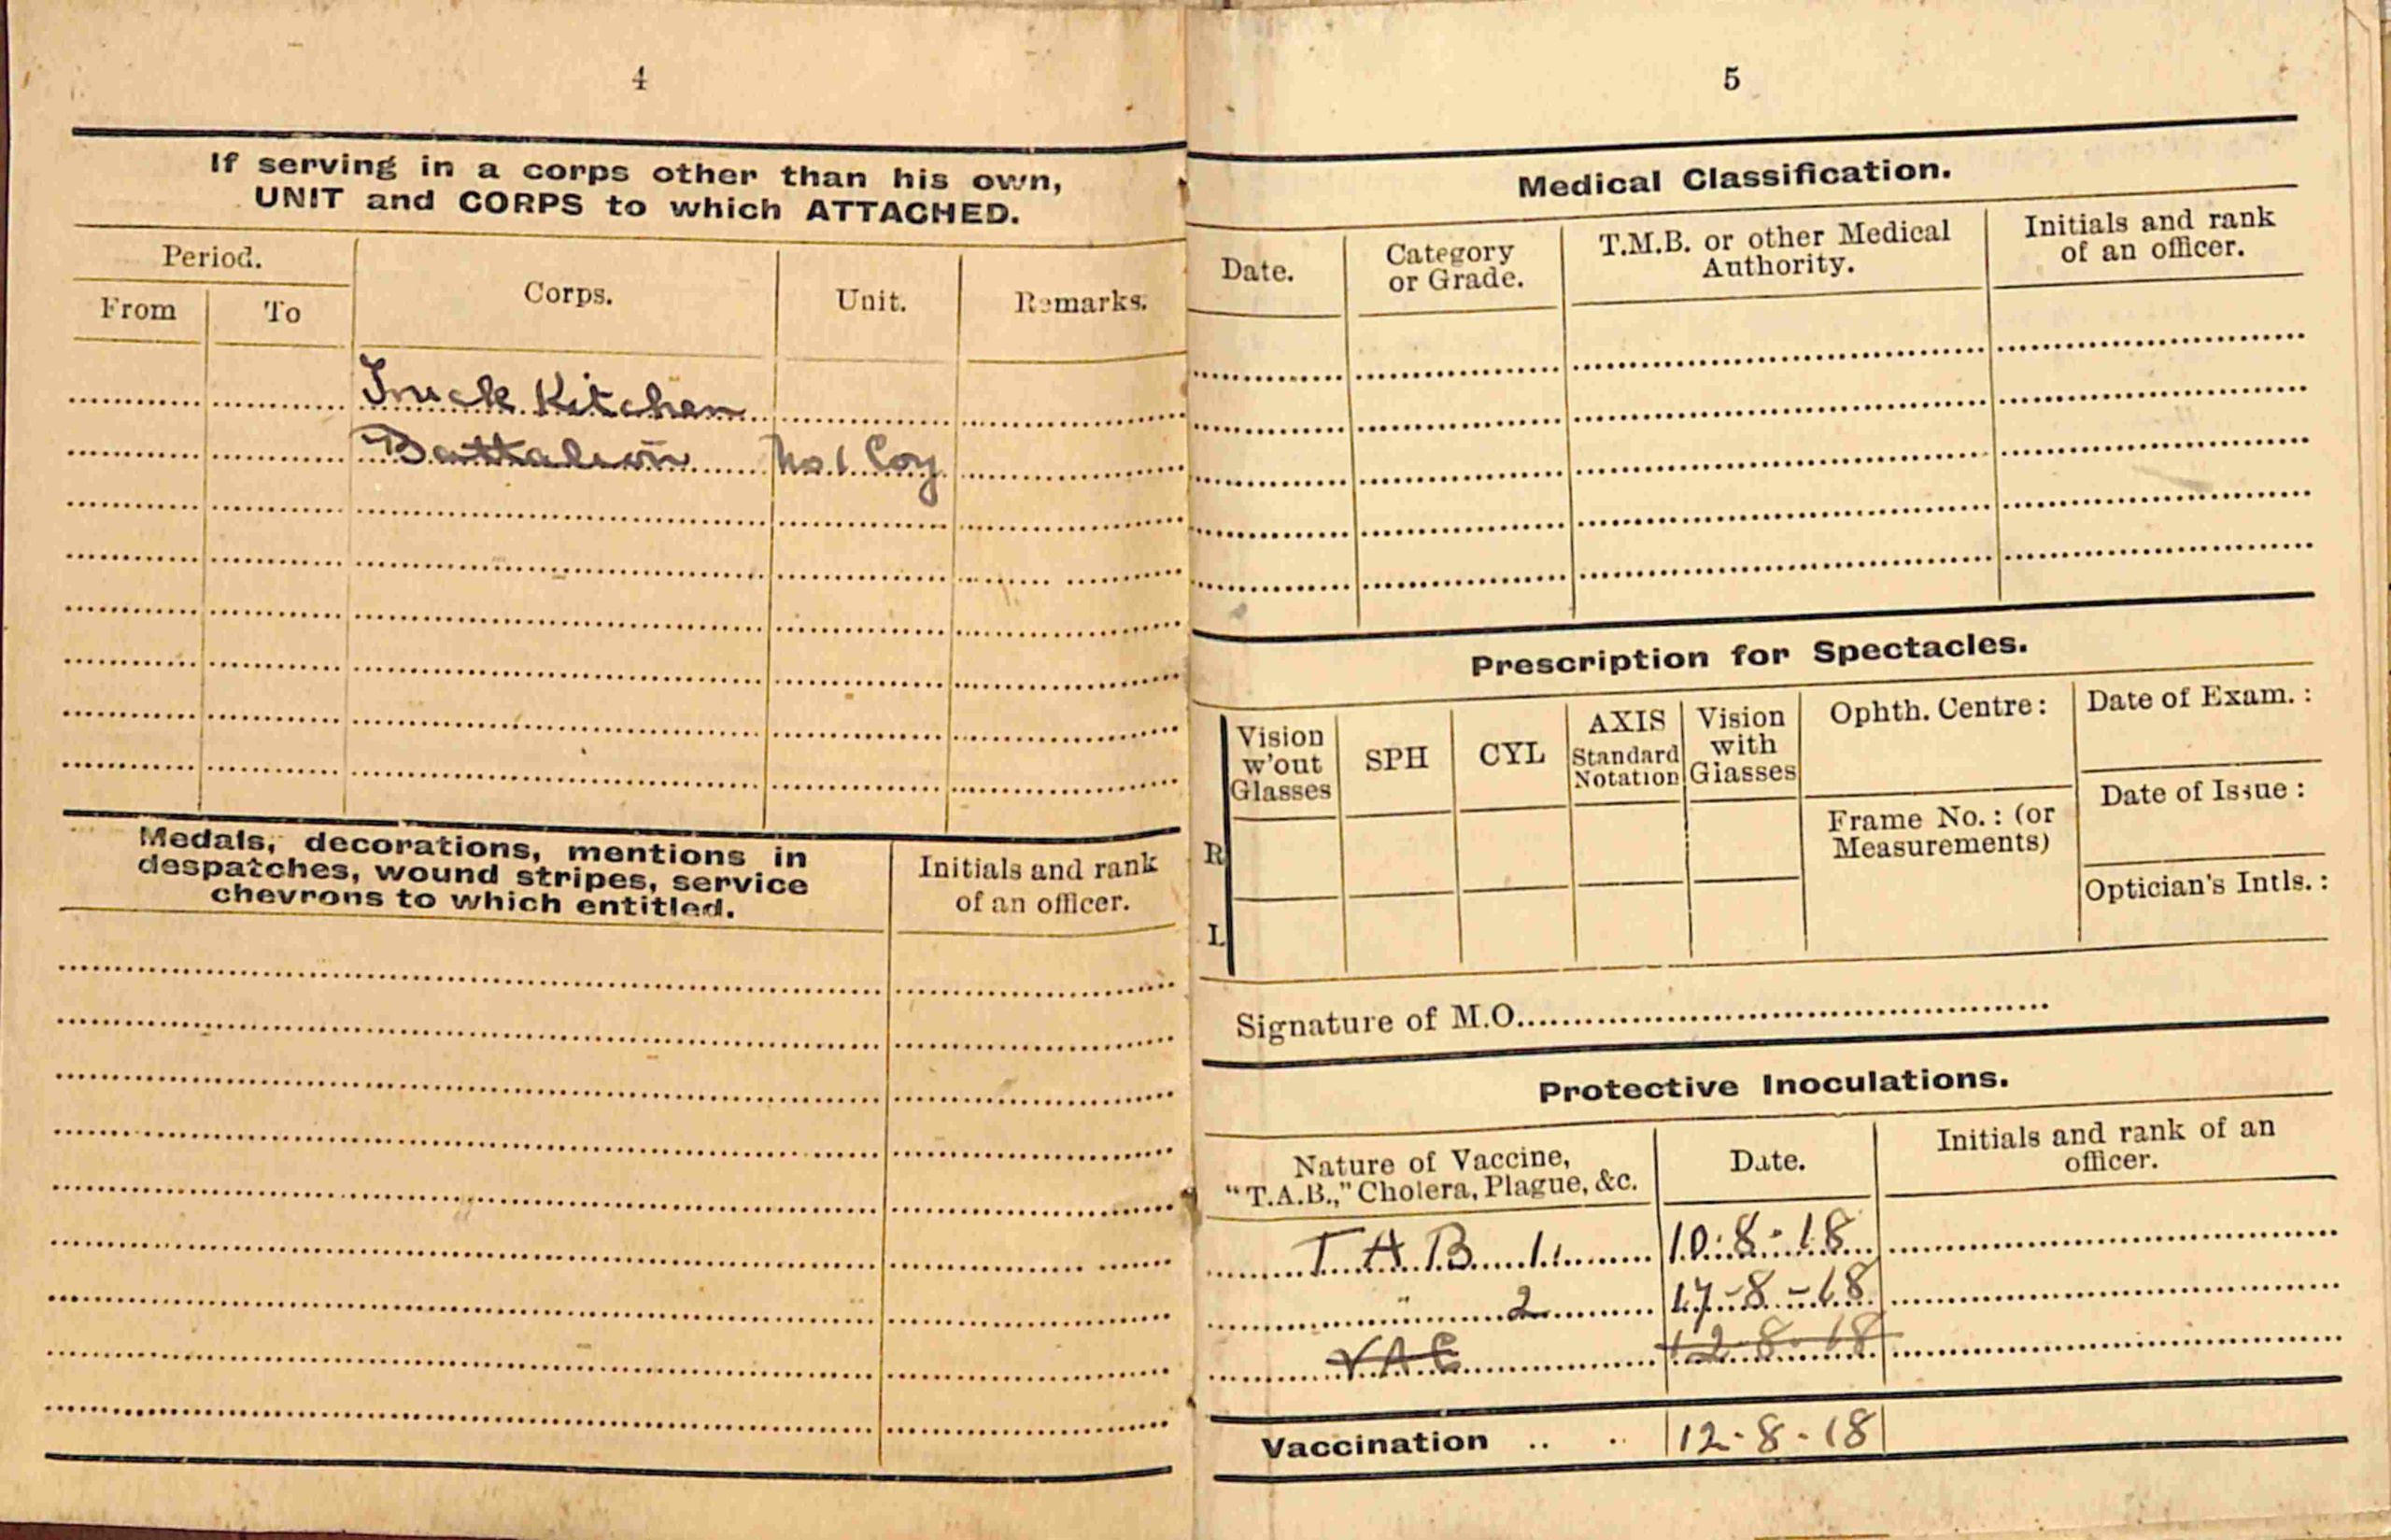 4
If serving in a corps other than his own,
UNIT and CORPS to which ATTACHED.
Period.
From
To
Corps.
Unit.
Remarks.
Kitchen
Battalion No. 1 Coy
Medals, decorations, mentions in
despatches, wound stripes, service
chevrons to which entitled.
Initials and rank
of an officer.
5
Medical Classification.
Date.
Category
or Grade.
T.M.B. or other Medical
Authority.
Initials and rank
of an officer.
Prescription for Spectacles.
Vision
w'out
Glasses
SPH
CYL
AXIS
Standard
Notation
Vision
with
Glasses
Ophth. Centre:
Frame No.: (or
Measurements)
Date of Exam.:
Date of Issue:
Optician's Intls.:
R
L
Signature of M.O.
Protective Inoculations.
Nature of Vaccine,
"T.A.B.," Cholera, Plague, &c.
Date.
Initials and rank of an
officer.
T A B 1 10.8.18
" 2 17-8-18
VAC 12-8-18
Vaccination .. .. 12-8-18